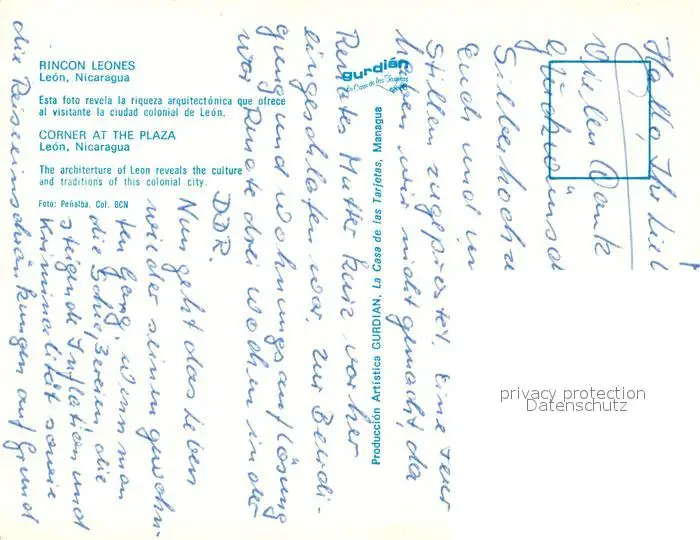 RINCON LEONES
León, Nicaragua
Esta foto revela la riqueza arquitectónica que ofrece
al visitante la ciudad colonial de León.
CORNER AT THE PLAZA
León, Nicaragua
The architerture of Leon reveals the culture
and traditions of this colonial city.
Foto: Peñalba. Col. BCN
gurdián
La Casa de las Tarjetas
Producción Artística GURDIAN, La Casa de las Tarjetas, Managua
Hallo Ihr Lieb
Vielen Dank
Glückwünsch
Silberhochz
Euch und in
Stillen zugeprostet. Eine Feier
haben wir nicht gemacht, da
Renates Mutter kurz vorher
eingeschlafen war. Zur Beerdi-
gung und Wohnungsauflösung
war Renate drei Wochen in der
DDR.
Nun geht das Leben
wieder seinen gewohn-
ten Gang, wenn man
die Schießereien, die
steigende Inflation und
Kriminalität sowie
die Reiseeinschränkungen auf Grund
privacy protection
Datenschutz